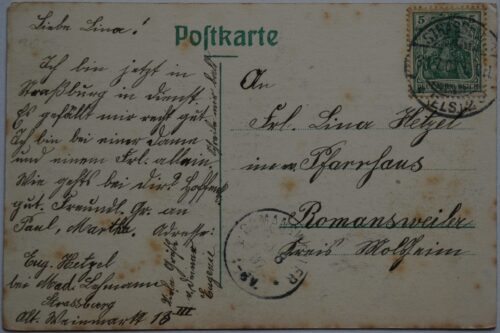 Postkarte
Liebe Lina!
Ich bin jetzt in
Straßburg in Dienst.
Es gefällt mir recht gut.
Ich bin bei einer Dame
und einem Frl. allein.
Wie gehts bei dir? Hoffentl.
gut. Freundl. Gr. an
Paul, Martha. Adresse:
Eug. Hetzel
bei Mad. Lehmann
Strassburg
Alt. Weinmarkt 18 III
Schreibe mir bald
Gruß
Eugenie
An
Frl. Lina Hetzel
im Pfarrhaus
Romansweiler
Kreis Molsheim
5
STRASSBURG
(ELS.)
ROMANSWEILER